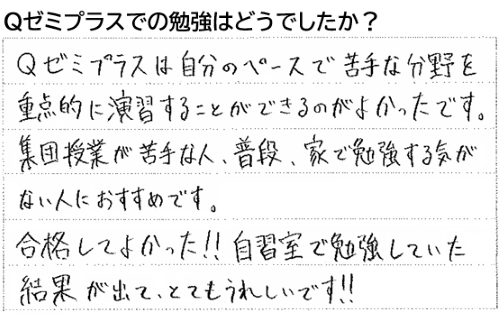 Qゼミプラスでの勉強はどうでしたか？
Qゼミプラスは自分のペースで苦手な分野を
重点的に演習することができるのがよかったです。
集団授業が苦手な人、普段、家で勉強する気が
ない人におすすめです。
合格してよかった!! 自習室で勉強していた
結果が出て、とてもうれしいです!!